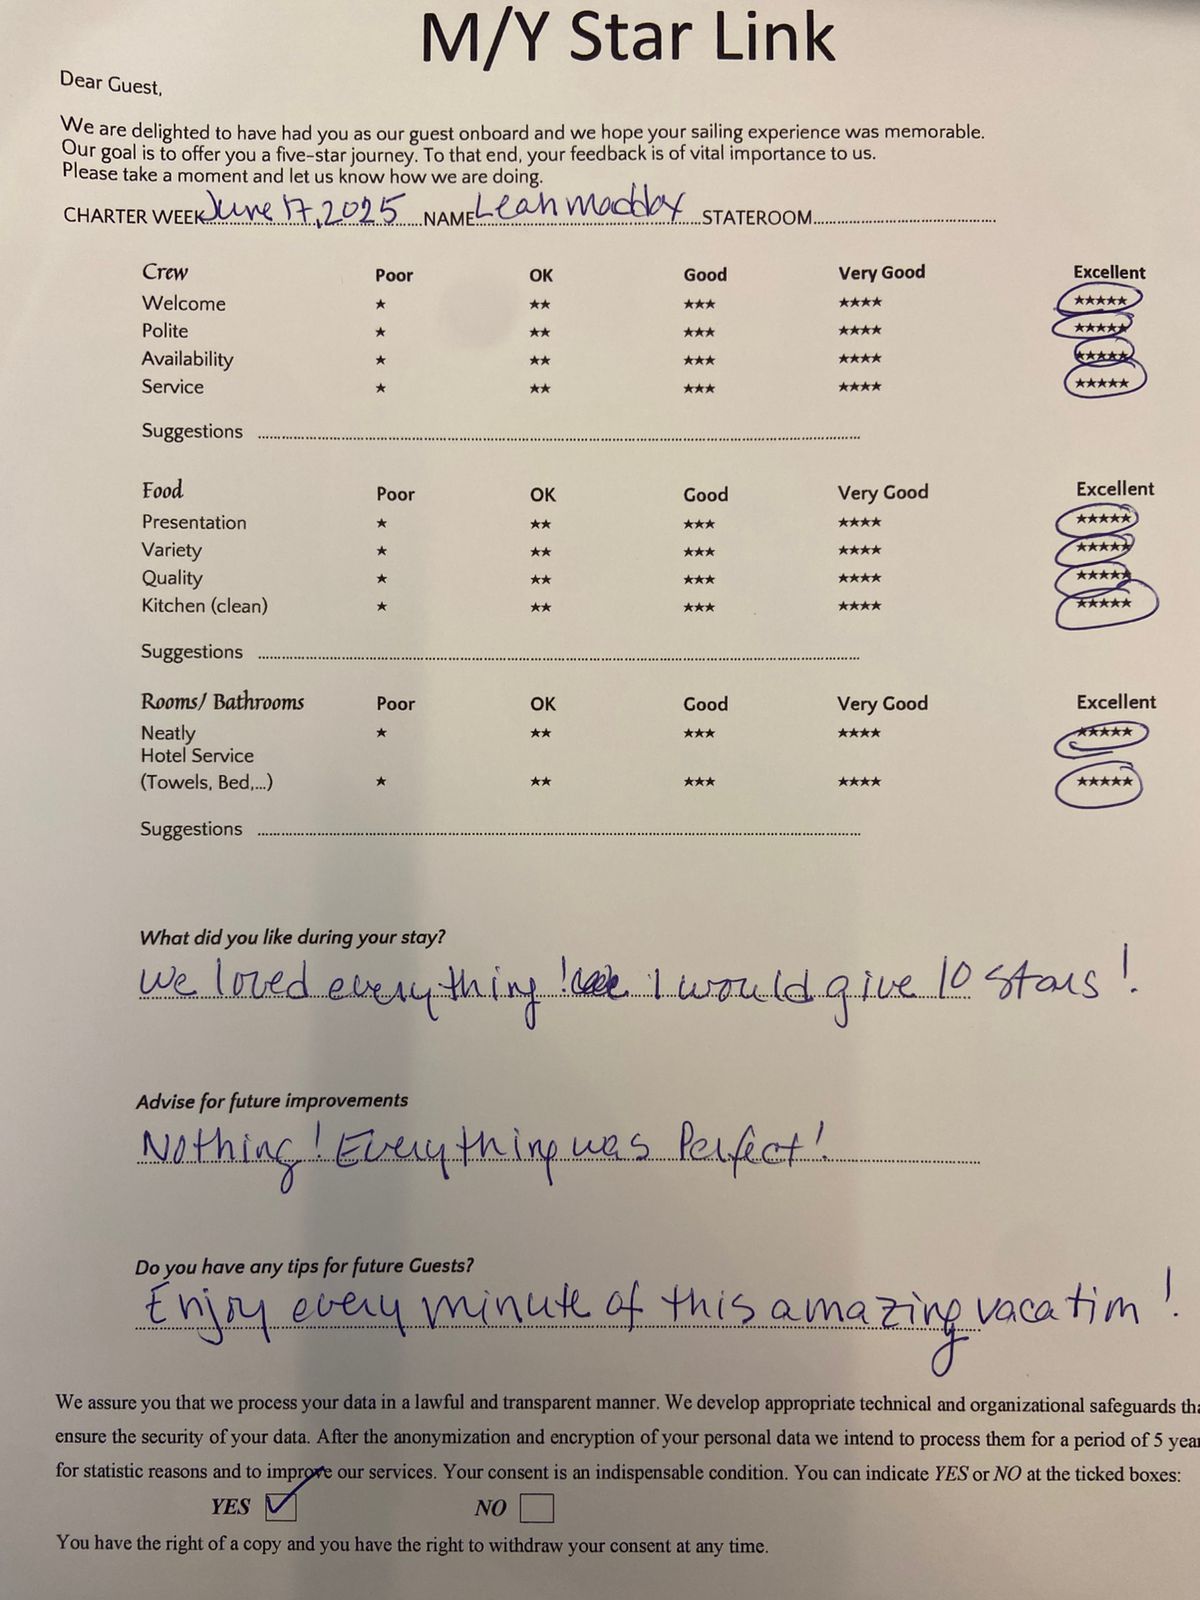 M/Y Star Link
Dear Guest,
We are delighted to have had you as our guest onboard and we hope your sailing experience was memorable.
Our goal is to offer you a five-star journey. To that end, your feedback is of vital importance to us.
Please take a moment and let us know how we are doing.
CHARTER WEEK June 17, 2025 NAME Leah Maddox STATEROOM
Crew Poor OK Good Very Good Excellent
Welcome ★ ★★ ★★★ ★★★★ ★★★★★
Polite ★ ★★ ★★★ ★★★★ ★★★★★
Availability ★ ★★ ★★★ ★★★★ ★★★★★
Service ★ ★★ ★★★ ★★★★ ★★★★★
Suggestions
Food Poor OK Good Very Good Excellent
Presentation ★ ★★ ★★★ ★★★★ ★★★★★
Variety ★ ★★ ★★★ ★★★★ ★★★★★
Quality ★ ★★ ★★★ ★★★★ ★★★★★
Kitchen (clean) ★ ★★ ★★★ ★★★★ ★★★★★
Suggestions
Rooms/ Bathrooms Poor OK Good Very Good Excellent
Neatly ★ ★★ ★★★ ★★★★ ★★★★★
Hotel Service
(Towels, Bed,...) ★ ★★ ★★★ ★★★★ ★★★★★
Suggestions
What did you like during your stay?
We loved everything! I would give 10 stars!
Advise for future improvements
Nothing! Everything was Perfect!
Do you have any tips for future Guests?
Enjoy every minute of this amazing vacation!
We assure you that we process your data in a lawful and transparent manner. We develop appropriate technical and organizational safeguards tha
ensure the security of your data. After the anonymization and encryption of your personal data we intend to process them for a period of 5 year
for statistic reasons and to improve our services. Your consent is an indispensable condition. You can indicate YES or NO at the ticked boxes:
YES ☑ NO ☐
You have the right of a copy and you have the right to withdraw your consent at any time.